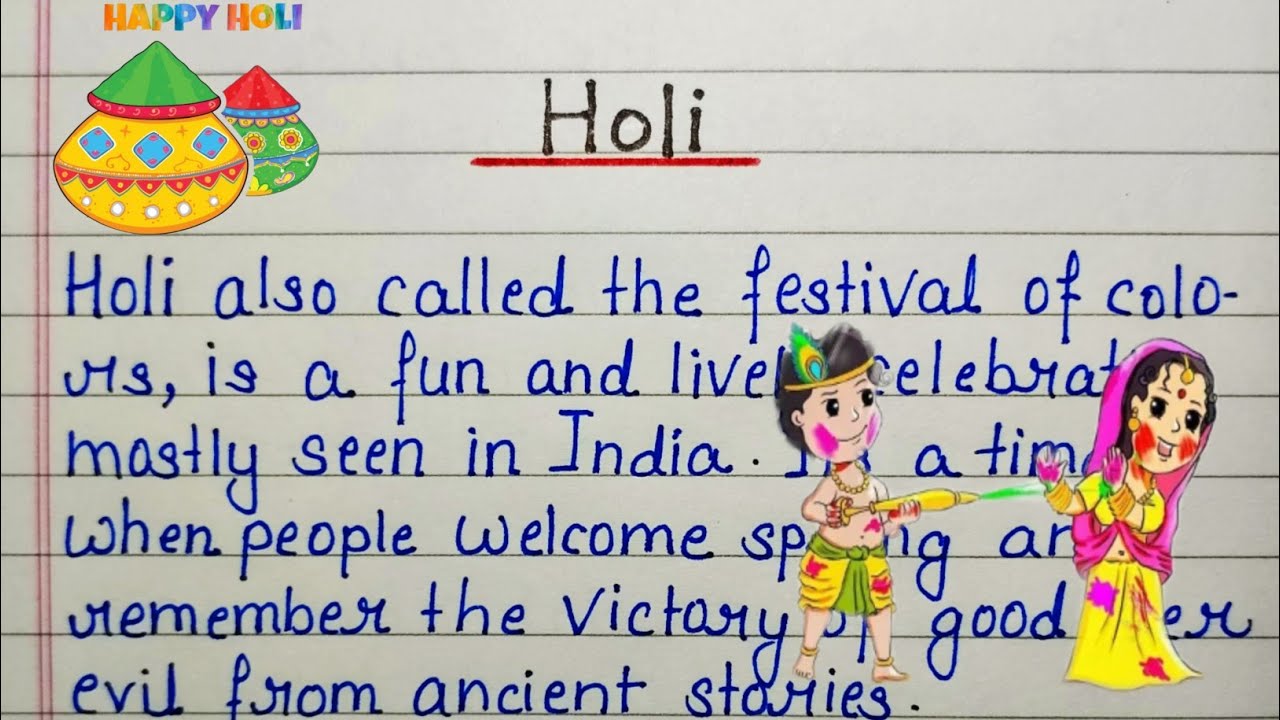 HAPPY HOLI
Holi
Holi also called the festival of colo-
rs, is a fun and
mostly seen in India. a
when people welcome
remember the victory good
evil from ancient stories.